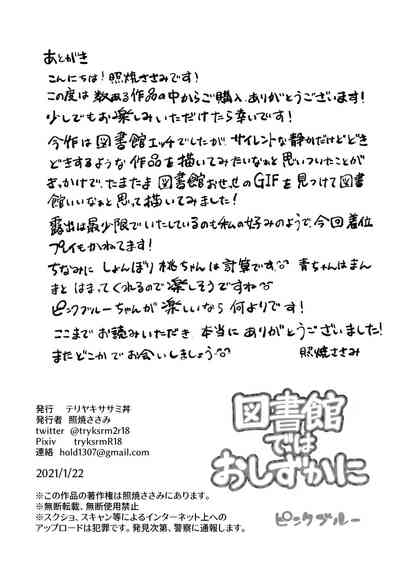 あとがき
こんにちは!照焼ささみです!
この度は数ある作品の中からご購入、ありがとうございます!
少しでもお楽しみいただけたら幸いです!
今作は図書館エッチでしたが、サイレントな静かだけどどき
どきするような作品を描いてみたいなぁと思いついたことが
きっかけで、たまたま図書館おせっせのGIFを見つけて図書
館いいなぁと思って描いてみました!
露出は最少限でいたしているのも私の好みのようで、今回着位
プレイもかねてます!
ちなみにしょんぼり桃ちゃんは計算です。青ちゃんはまん
まとはまってくれるので楽しそうですね
ピンクブルーちゃんが楽しいなら何よりです!
ここまでお読みいただき本当にありがとうございました!
またどこかでお会いしましょう
照焼ささみ
発行 テリヤキササミ丼
発行者 照焼ささみ
twitter @tryksrm2r18
Pixiv tryksrmR18
連絡 hold1307@gmail.com
2021/1/22
※この作品の著作権は照焼ささみにあります。
※無断転載、無断使用禁止
※スクショ、スキャン等によるインターネット上への
アップロードは犯罪です。発見次第、警察に通報します。
図書館
では
おしずかに
ピンクブルー